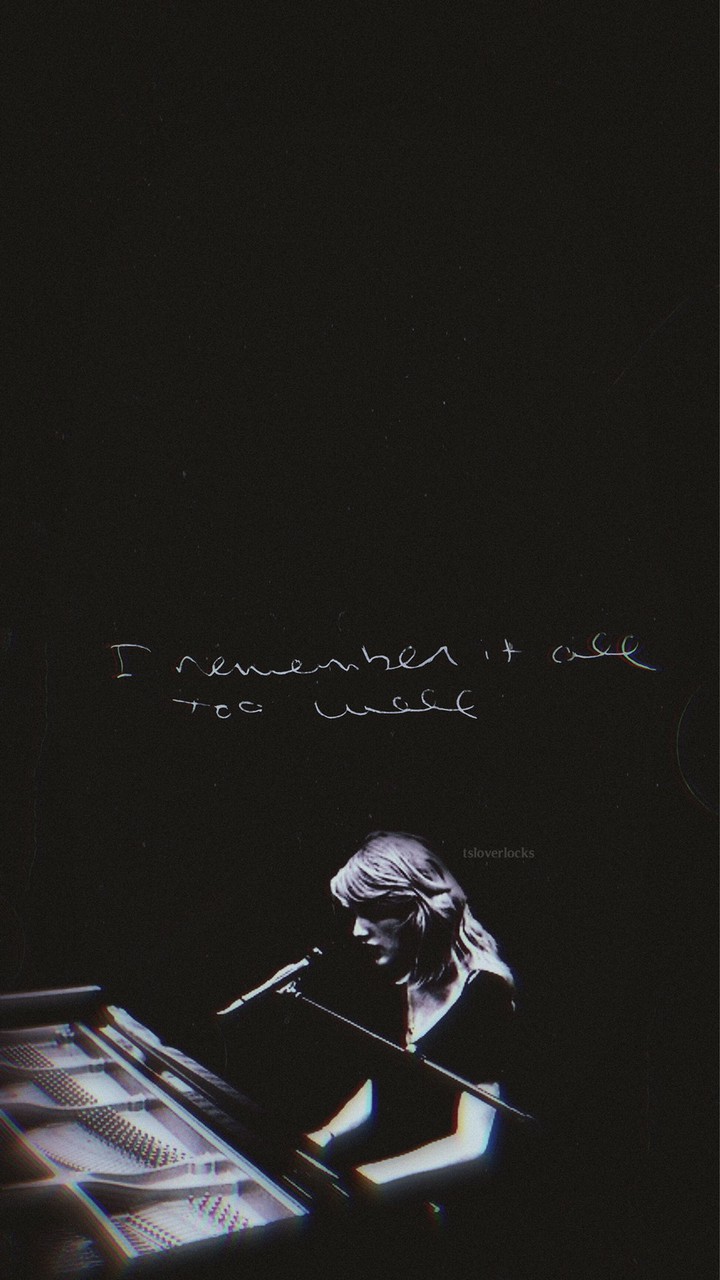 I remember it all
too well
tsloverlocks